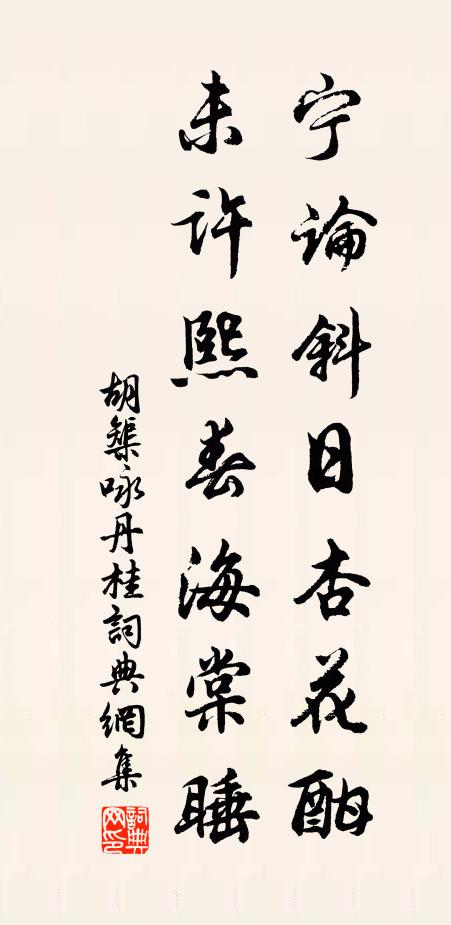 宁論斜日杏花酣
未許熙春海棠睡
胡榘咏丹桂詞典網集
詞典网印